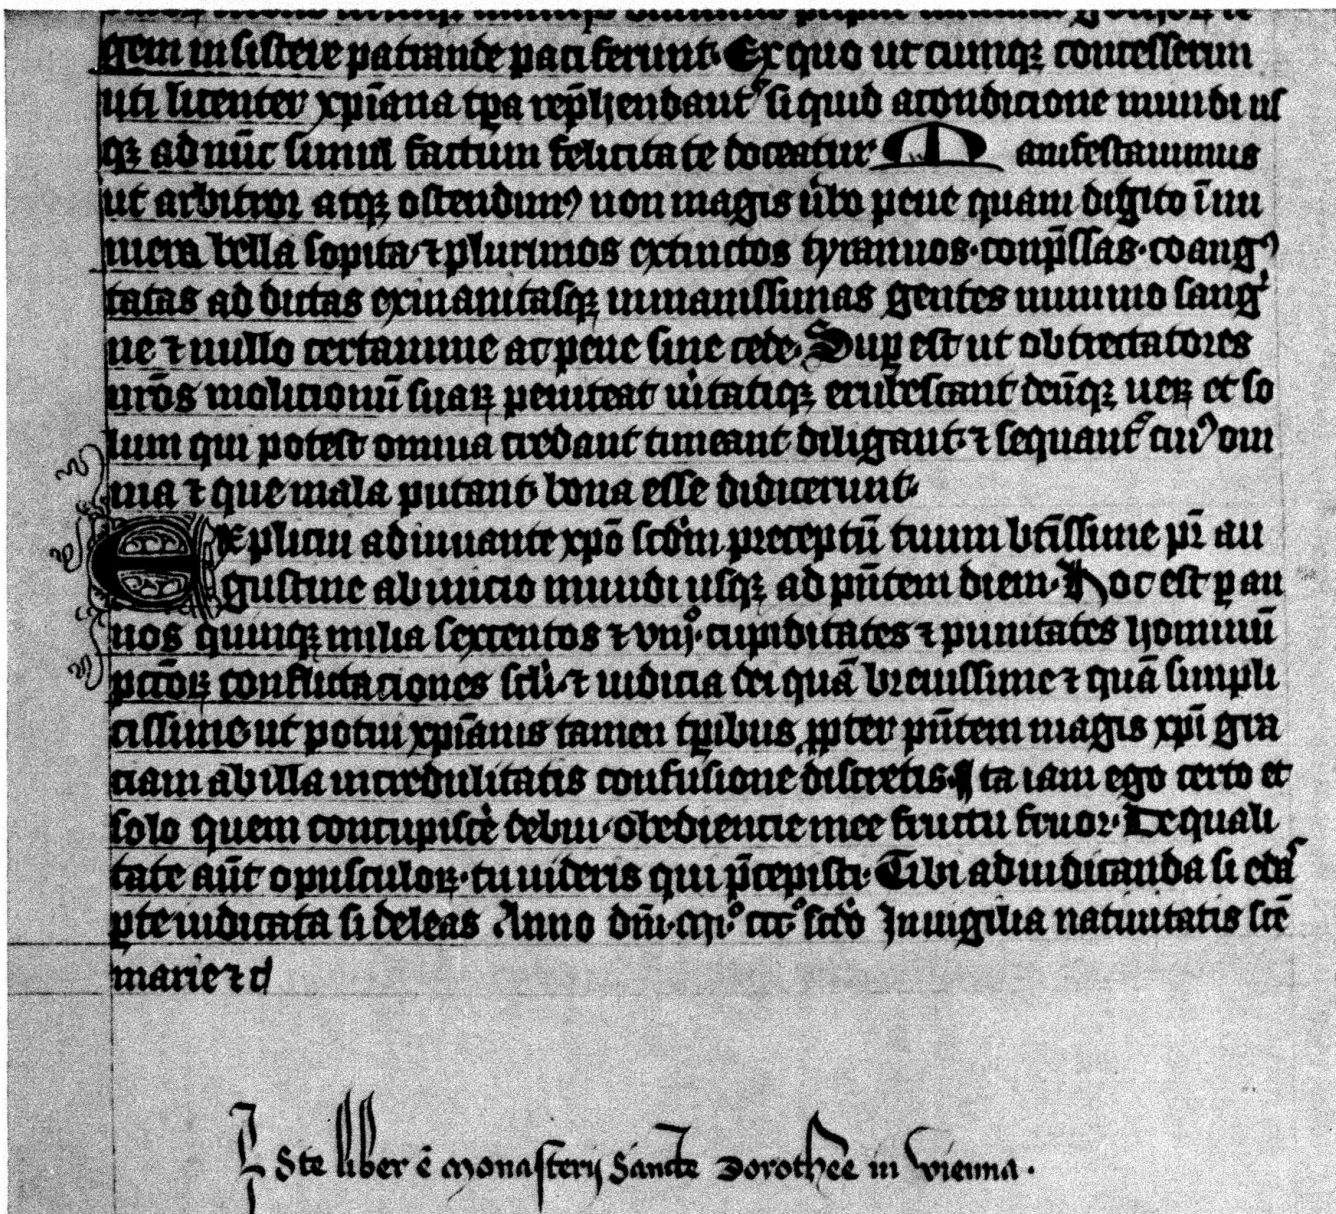 gem insistere patrande paci ferunt· Ex quo ut cumqꝫ concesserim
uti licenter xp̄iana tꝑa rep̄hendant᷑ si quid acondicione mundi us
qꝫ ad nūc simili factum felicitate doceatur Manifestauimus
ut arbitror atqꝫ ostendimꝰ non magis úbo pene quam digito īnu
mera bella sopita· ⁊ plurimos extinctos tyrannos· conp̄ssas· coangꝰ
tatas ad dictas exinanitasqꝫ inmanissimas gentes minimo sangⁱ
ne ⁊ nullo certamine ac pene sine cede· Suꝑ est ut obtrectatores
nr̄os molicionū suaꝝ peniteat úitatiqꝫ erubescant deūqꝫ ueꝝ et so
lum qui potest omnia credant timeant diligant· ⁊ sequant᷑ cuiꝰ om
nia ⁊ que mala putant· bona esse didicerunt·
Explicui adiuuante xpō scdm preceptū tuum btīssime pr̄ au
gustine abinicio mundi usqꝫ ad pn̄tem diem· Hoc est ꝑ an
nos quinqꝫ milia sexcentos ⁊ vnj°· cupiditates ⁊ punitates hominū
pctōꝝ conflictaciones scli· ⁊ iudicia dei quā breuissime ⁊ quā simpli
cissime ut potui xp̄ianis tamen tꝑibus ꝓpter pn̄tem magis xp̄i gra
ciam ab illa incredulitatis confusione discretis· Ita iam ego certo et
solo quem concupiscē debui· obediencie mee fructu fruor· De quali
tate aūt opusculoꝝ· tu uideris qui p̄cepisti· Tibi adiudicanda si edas
ꝑte iudicata si deleas Anno dnī· mi° cccc° scdō In uigilia natiuitatis scē
marie ⁊ cͭ
Iste liber ē Monasterij Sancte Dorothee in Vienna·